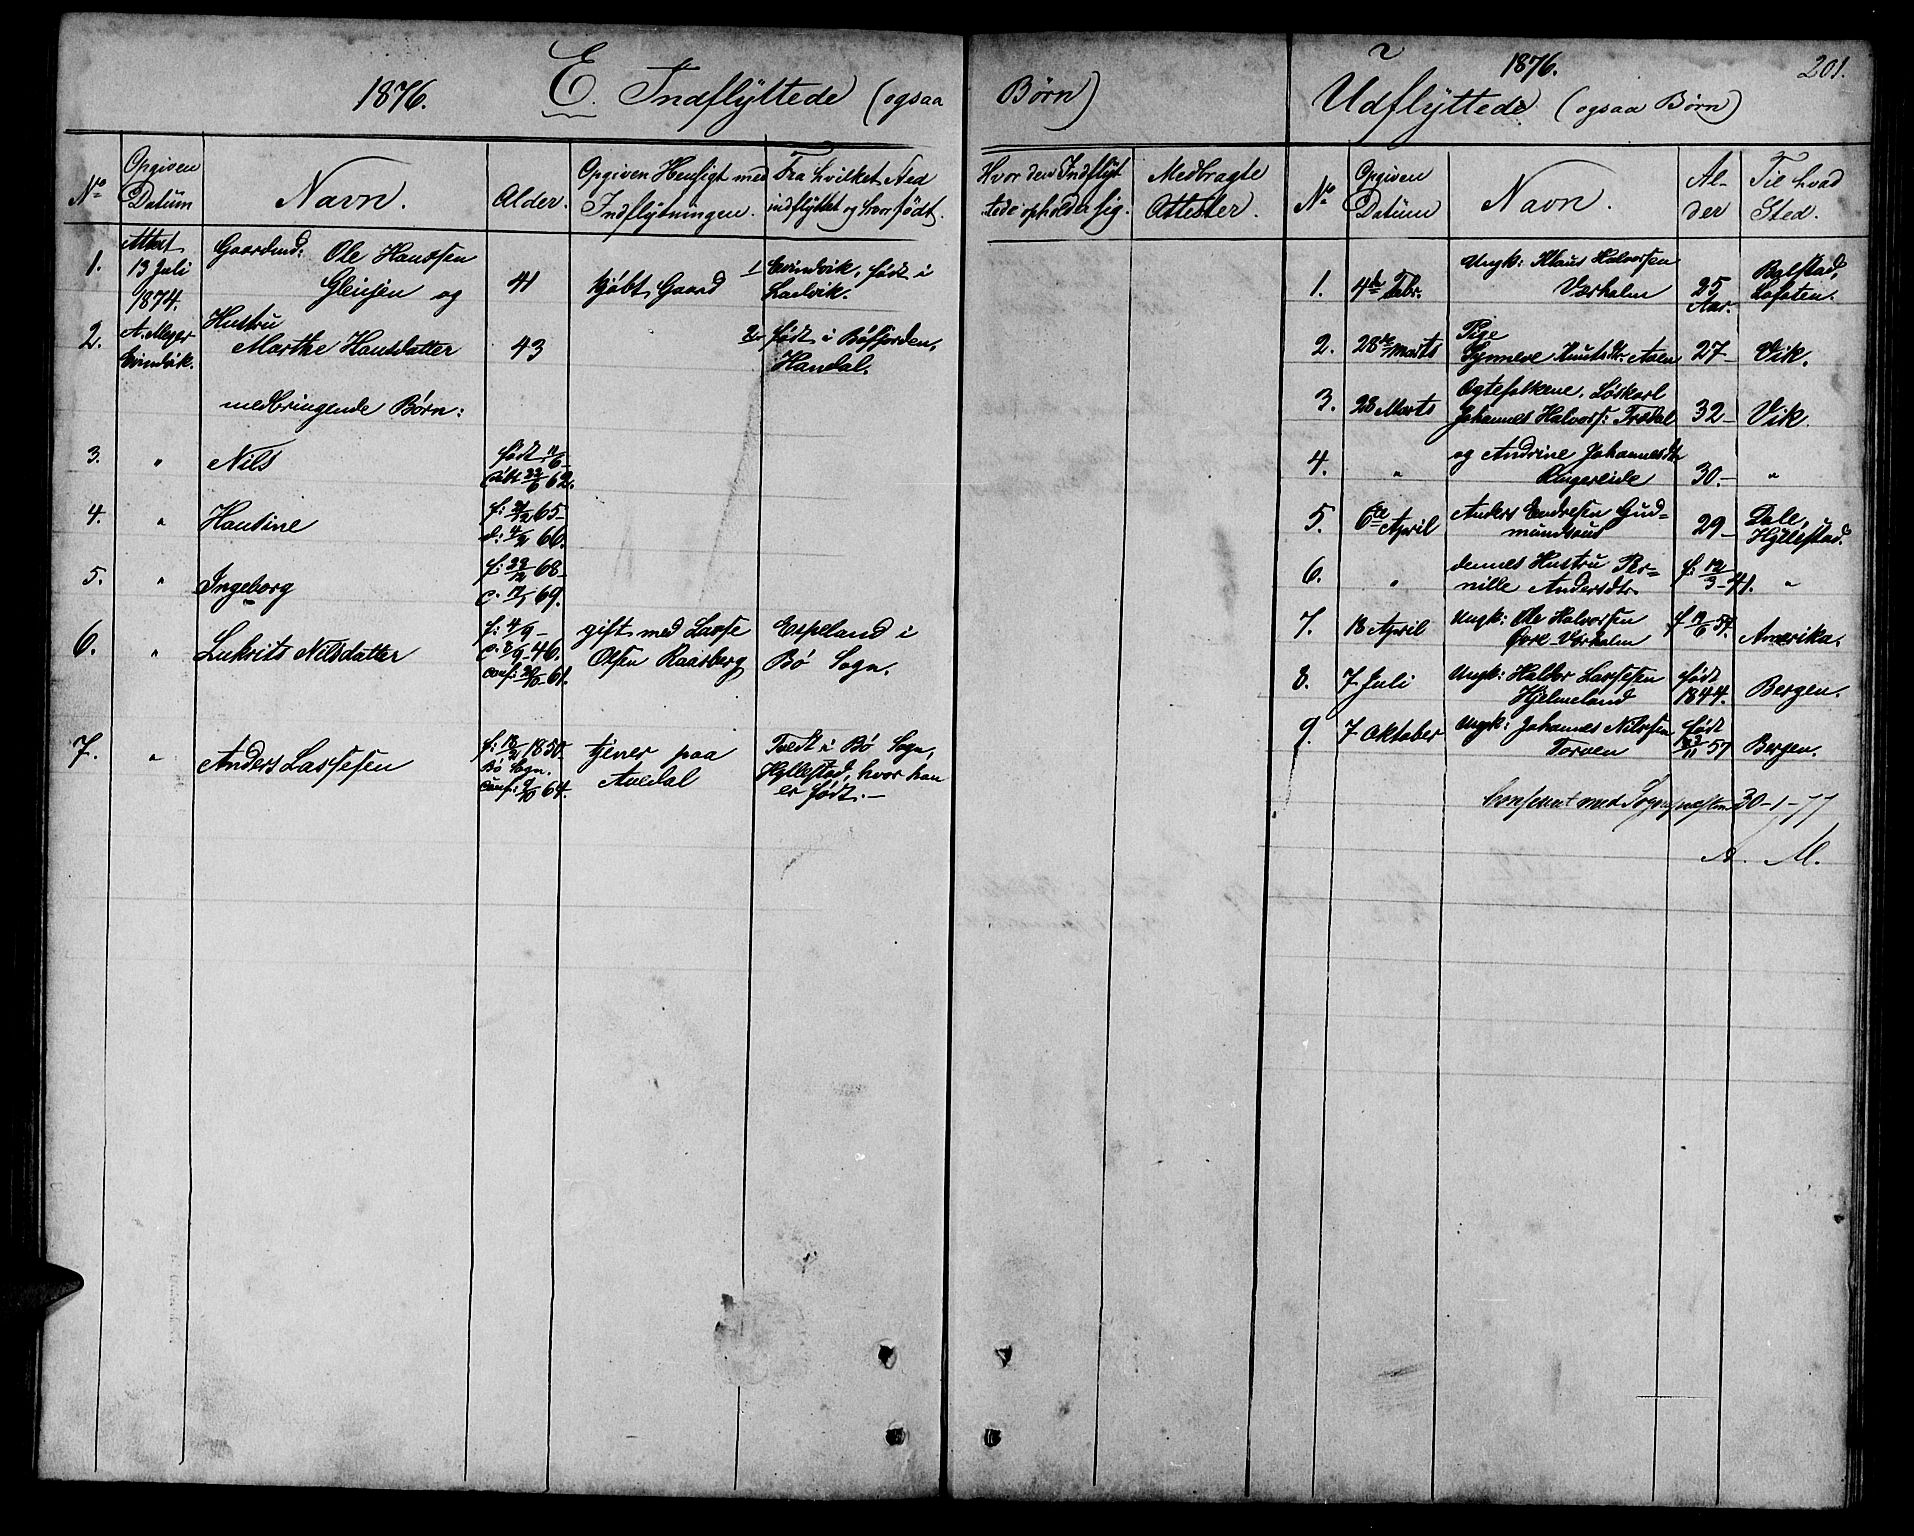 1876. E. Indflyttede (ogsaa Børn)
No Opgiven Datum Navn. Alder. Opgiven Hensigt med Indflytningen. Fra hvilket Sted indflyttet og hvor født. Hvor den Indflyttede opholder sig. Medbragte Attester.
1. Attest 13 Juli 1874. Gaardmd: Ole Hanssen og 41 kjøbt Gaard 1 Evindvik, født i Lavik.
2. A. Meyer Evindvik. Hustru Marthe Hansdatter 43 2. født i Bøfjorden,
medbringende Børn:
3. " Nils født 11/6 døbt 22/6 62.
4. " Hansine f: 65- d: 4/2 66.
5. " Ingeborg f: 22/12 68- 69.
6. " Lukrits Nilsdatter f: 4/9- 46. conf: 61. gift med Lasse Olsen Raasberg Espeland i Bø Sogn.
7. " Anders Lassesen f: 1850- Bø Sogn. conf: 64. tjener paa Avedal Tvedt i Bø Sogn, Hyllestad, hvor han er født.-
1876. 201.
Udflyttede (ogsaa Børn)
No Opgiven Datum Navn. Alder Til hvad Sted.
1. 4de Febr. Ungk: Klaus Halvorsen Værholm 25 Aar. Balstad, Lofoten.
2. 28de Marts Pige Synneve Knutsdtr. 27- Vik.
3. 28 Marts Ogtefolkene, Løskarl Johannes Halvors: Trædal 32- Vik.
4. " og Andrine Johannesdtr Ringereide 30.- "
5. 6te April Anders Endresen Gudmundsnes 29- Dale, Hyllestad.
6. " dennes Hustru Pernille Andersdtr. f: 12/3-41. "
7. 18 April Ungk: Ole Halvorsen Øvre Værholm f Amerika.
8. 7 Juli Ungk: Haldor Lassesen Hjelmeland født 1844. Bergen.
9. 7 Oktober Ungk: Johannes Nilssen Torven født 57 Bergen.
Confereret med 30-1-77
A. M.